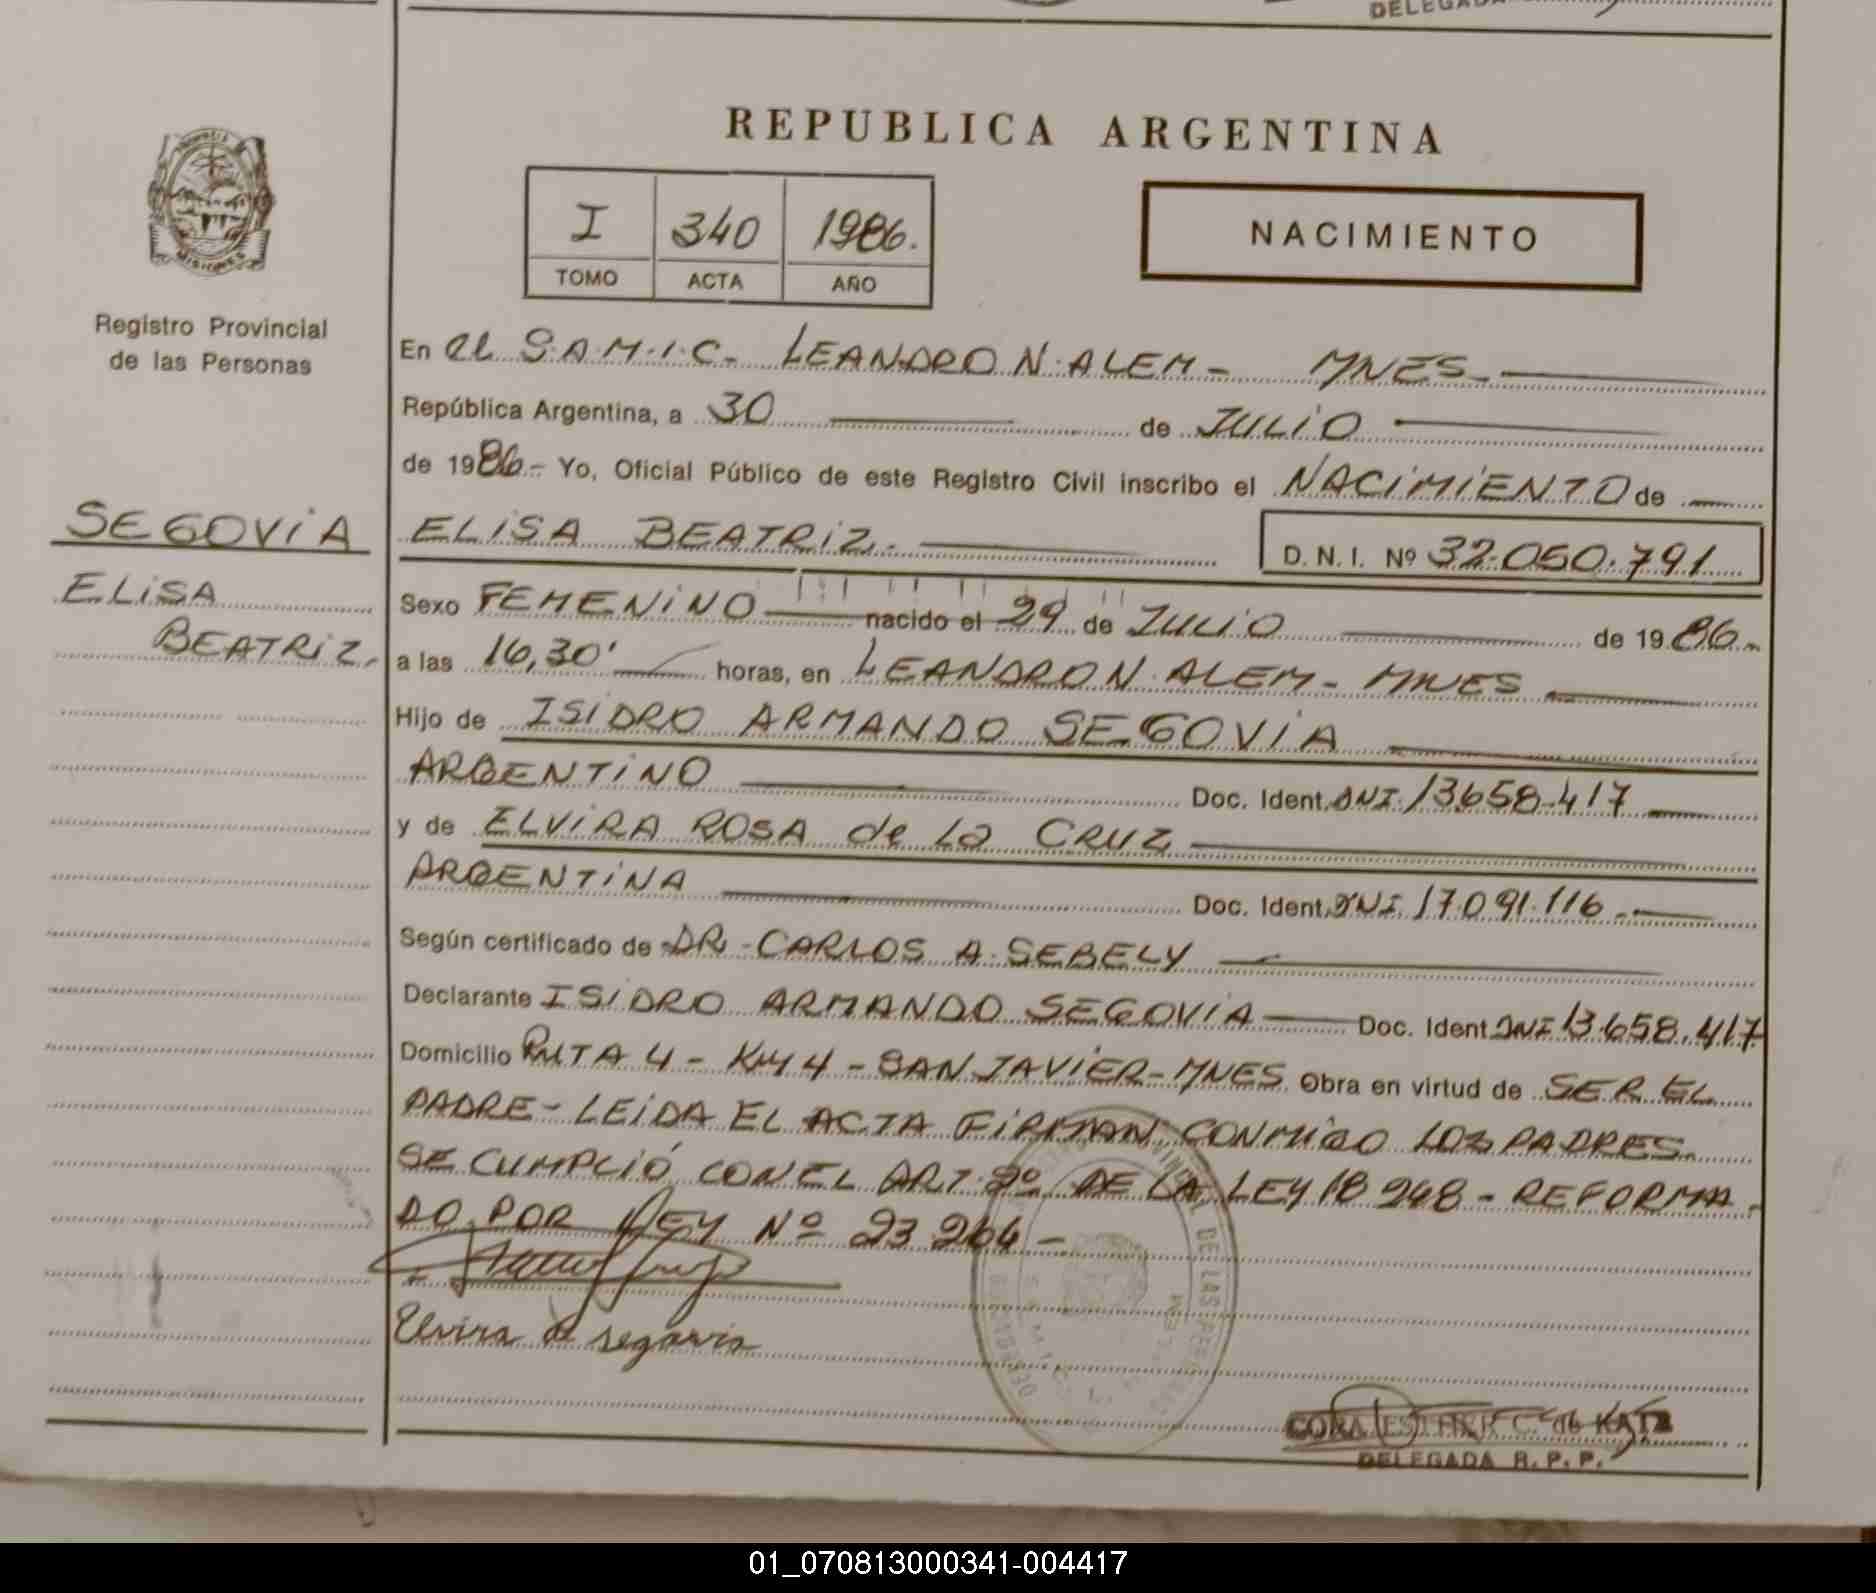 DELEGADA
REPUBLICA ARGENTINA
I 340 1986.
TOMO ACTA AÑO
NACIMIENTO
MISIONES
Registro Provincial
de las Personas
SEGOVIA
ELISA
BEATRIZ.
En el S.A.M.I.C. LEANDRO N. ALEM - MNES
República Argentina, a 30 de JULIO
de 1986.- Yo, Oficial Público de este Registro Civil inscribo el NACIMIENTO de
ELISA BEATRIZ. D. N. I. Nº 32.050.791
Sexo FEMENINO nacido el 29 de JULIO de 1986.
a las 16,30' horas, en LEANDRO N. ALEM - MNES
Hijo de ISIDRO ARMANDO SEGOVIA
ARGENTINO Doc. Ident. DNI 13.658.417
y de ELVIRA ROSA de La CRUZ
ARGENTINA Doc. Ident. DNI 17.091.116
Según certificado de DR. CARLOS A. SEBELY
Declarante ISIDRO ARMANDO SEGOVIA Doc. Ident DNI 13.658.417
Domicilio RUTA 4 - KM 4 - SAN JAVIER - MNES Obra en virtud de SER EL
PADRE - LEIDA EL ACTA FIRMAN CONMIGO LOS PADRES.
SE CUMPLIÓ CON EL ART. 2º DE LA LEY 18 248 - REFORMA
DO POR LEY Nº 23 264 -
Elvira d segovia
DE LAS
CORA ESTHER C. de KATZ
DELEGADA R. P. P.
01_070813000341-004417